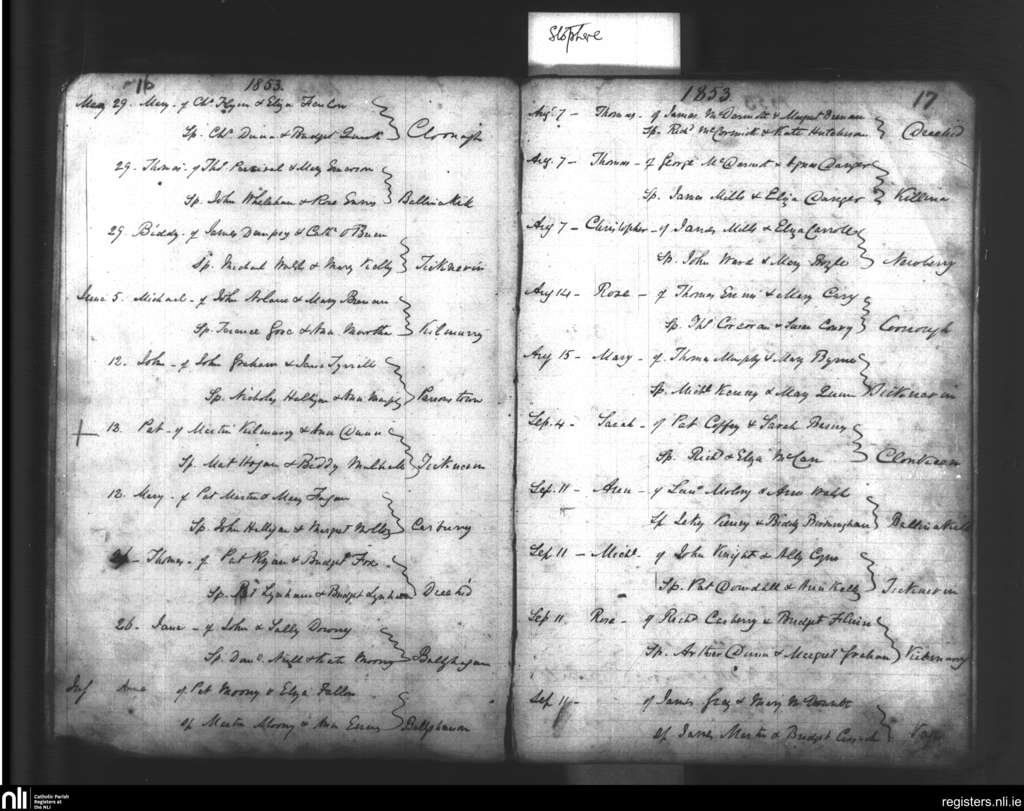 Stophere
16 1853.
May 29. Mary - of Chr. Flynn & Eliza Hanlon
Sp. Chr. Dunn & Bridget Quirk Cloonagh
29. Thomas - of Ths. Percival & Mary Emerson
Sp. John Whelehan & Rose Ennis Ballinakil
29 Biddy - of James Dempsy & Cath. O'Brien
Sp. Michael Walsh & Mary Kelly Ticknevin
June 5. Michael - of John Nolane & Mary Brenan
Sp. Terence & Ann Kilmurry
12. John - of John Graham & Jane Tyrrell
Sp. Nicholas Halligan & Ann Murphy Parsonstown
12. Pat - of Martin Kilmurry & Ann Dunn
Sp. Mat Hogan & Biddy Mulhall Ticknevin
12. Mary - of Pat Martin & Mary Fagan
Sp. John Halligan & Margret Carbury
Thomas - of Pat Flynn & Bridget Fox
Sp. Pat Lynham & Bridget Lynham Dreehid
26. Jane - of John & Sally Downy
Sp. Danl. Niell & Kate Moony Ballyhagan
of Pat Moony & Eliza Fallon
Sp Martin Moony & Ann Ennis
1853 17
Aug. 7 - Thomas - of James McDermott & Margret Brenan
Sp. Richd McCormick & Kate Hutchinson Dreehid
Aug. 7 - Thomas - of George McDermot & Agnes Danger
Sp. James Mills & Eliza Danger Killina
Aug 7 - Christopher - of James Mills & Eliza Carroll
Sp. John Ward & Mary Boyle Newberry
Aug 14 - Rose - of Thomas Ennis & Mary Cary
Sp. Ths Corcoran & Susan Conry Coonough
Aug 15 - Mary - of Thomas Murphy & Mary Byrne
Sp. Michl Kenny & Mary Quinn Ticknevin
Sep. 4 - Sarah - of Pat Coffey & Sarah
Sp. Richd & Eliza McCan Clonkeen
Sep. 11 - Ann - of Laur. Moloy & Ann Walsh
Sp Kenny & Biddy Birmingham Ballinakill
Sep 11 - Michl. of John Knight & Ally
Sp. Pat Dowdall & Ann Kelly Ticknevin
Sep 11 Rose - of Richd Casberry & Bridget
Sp. Arther Dunn & Margret Graham Kilmurry
Sep 11 - of James Gray & Mary McDonnell
Sp James Martin & Bridget
nli Catholic Parish
Registers at
the NLI
registers.nli.ie